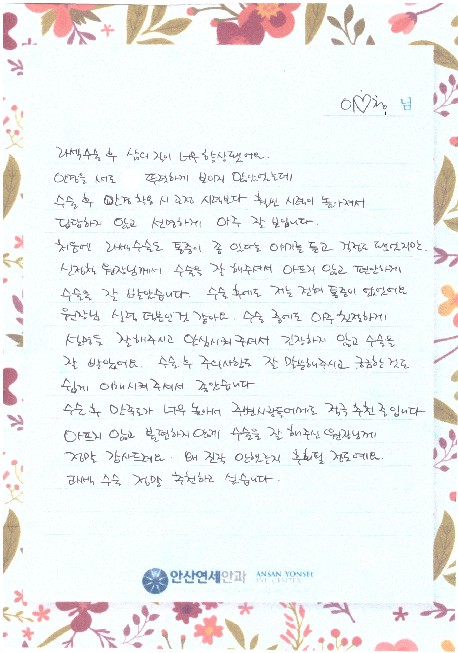 이♡형 님
라섹수술 후 삶의 질이 너무 향상됐어요.
안경을 써도 또렷하게 보이지 않았었는데
수술 후 안경 착용 시 교정 시력보다 훨씬 시력이 높아져서
답답하지 않고 선명하게 아주 잘 보입니다.
처음엔 라섹수술은 통증이 좀 있다는 얘기를 듣고 걱정도 됐었지만
원장님께서 수술을 잘 해주셔서 아프지 않고 편안하게
수술을 잘 받았습니다. 수술 후에도 저는 전혀 통증이 없었어요
원장님 실력 덕분인 것 같아요. 수술 중에도 아주 친절하게
설명도 잘해주시고 안심시켜 주셔서 긴장하지 않고 수술을
잘 받았어요. 수술 후 주의사항도 잘 말씀해주시고 궁금한 것도
쉽게 이해시켜 주셔서 좋았습니다
수술 후 만족도가 너무 높아서 주변사람들에게도 적극 추천 중입니다
아프지 않고 불편하지 않게 수술을 잘 해주신 원장님께
정말 감사드려요. 왜 진작 안했는지 후회될 정도예요.
라섹 수술 정말 추천하고 싶습니다.
안산연세안과 ANSAN YONSEI
EYE CENTER